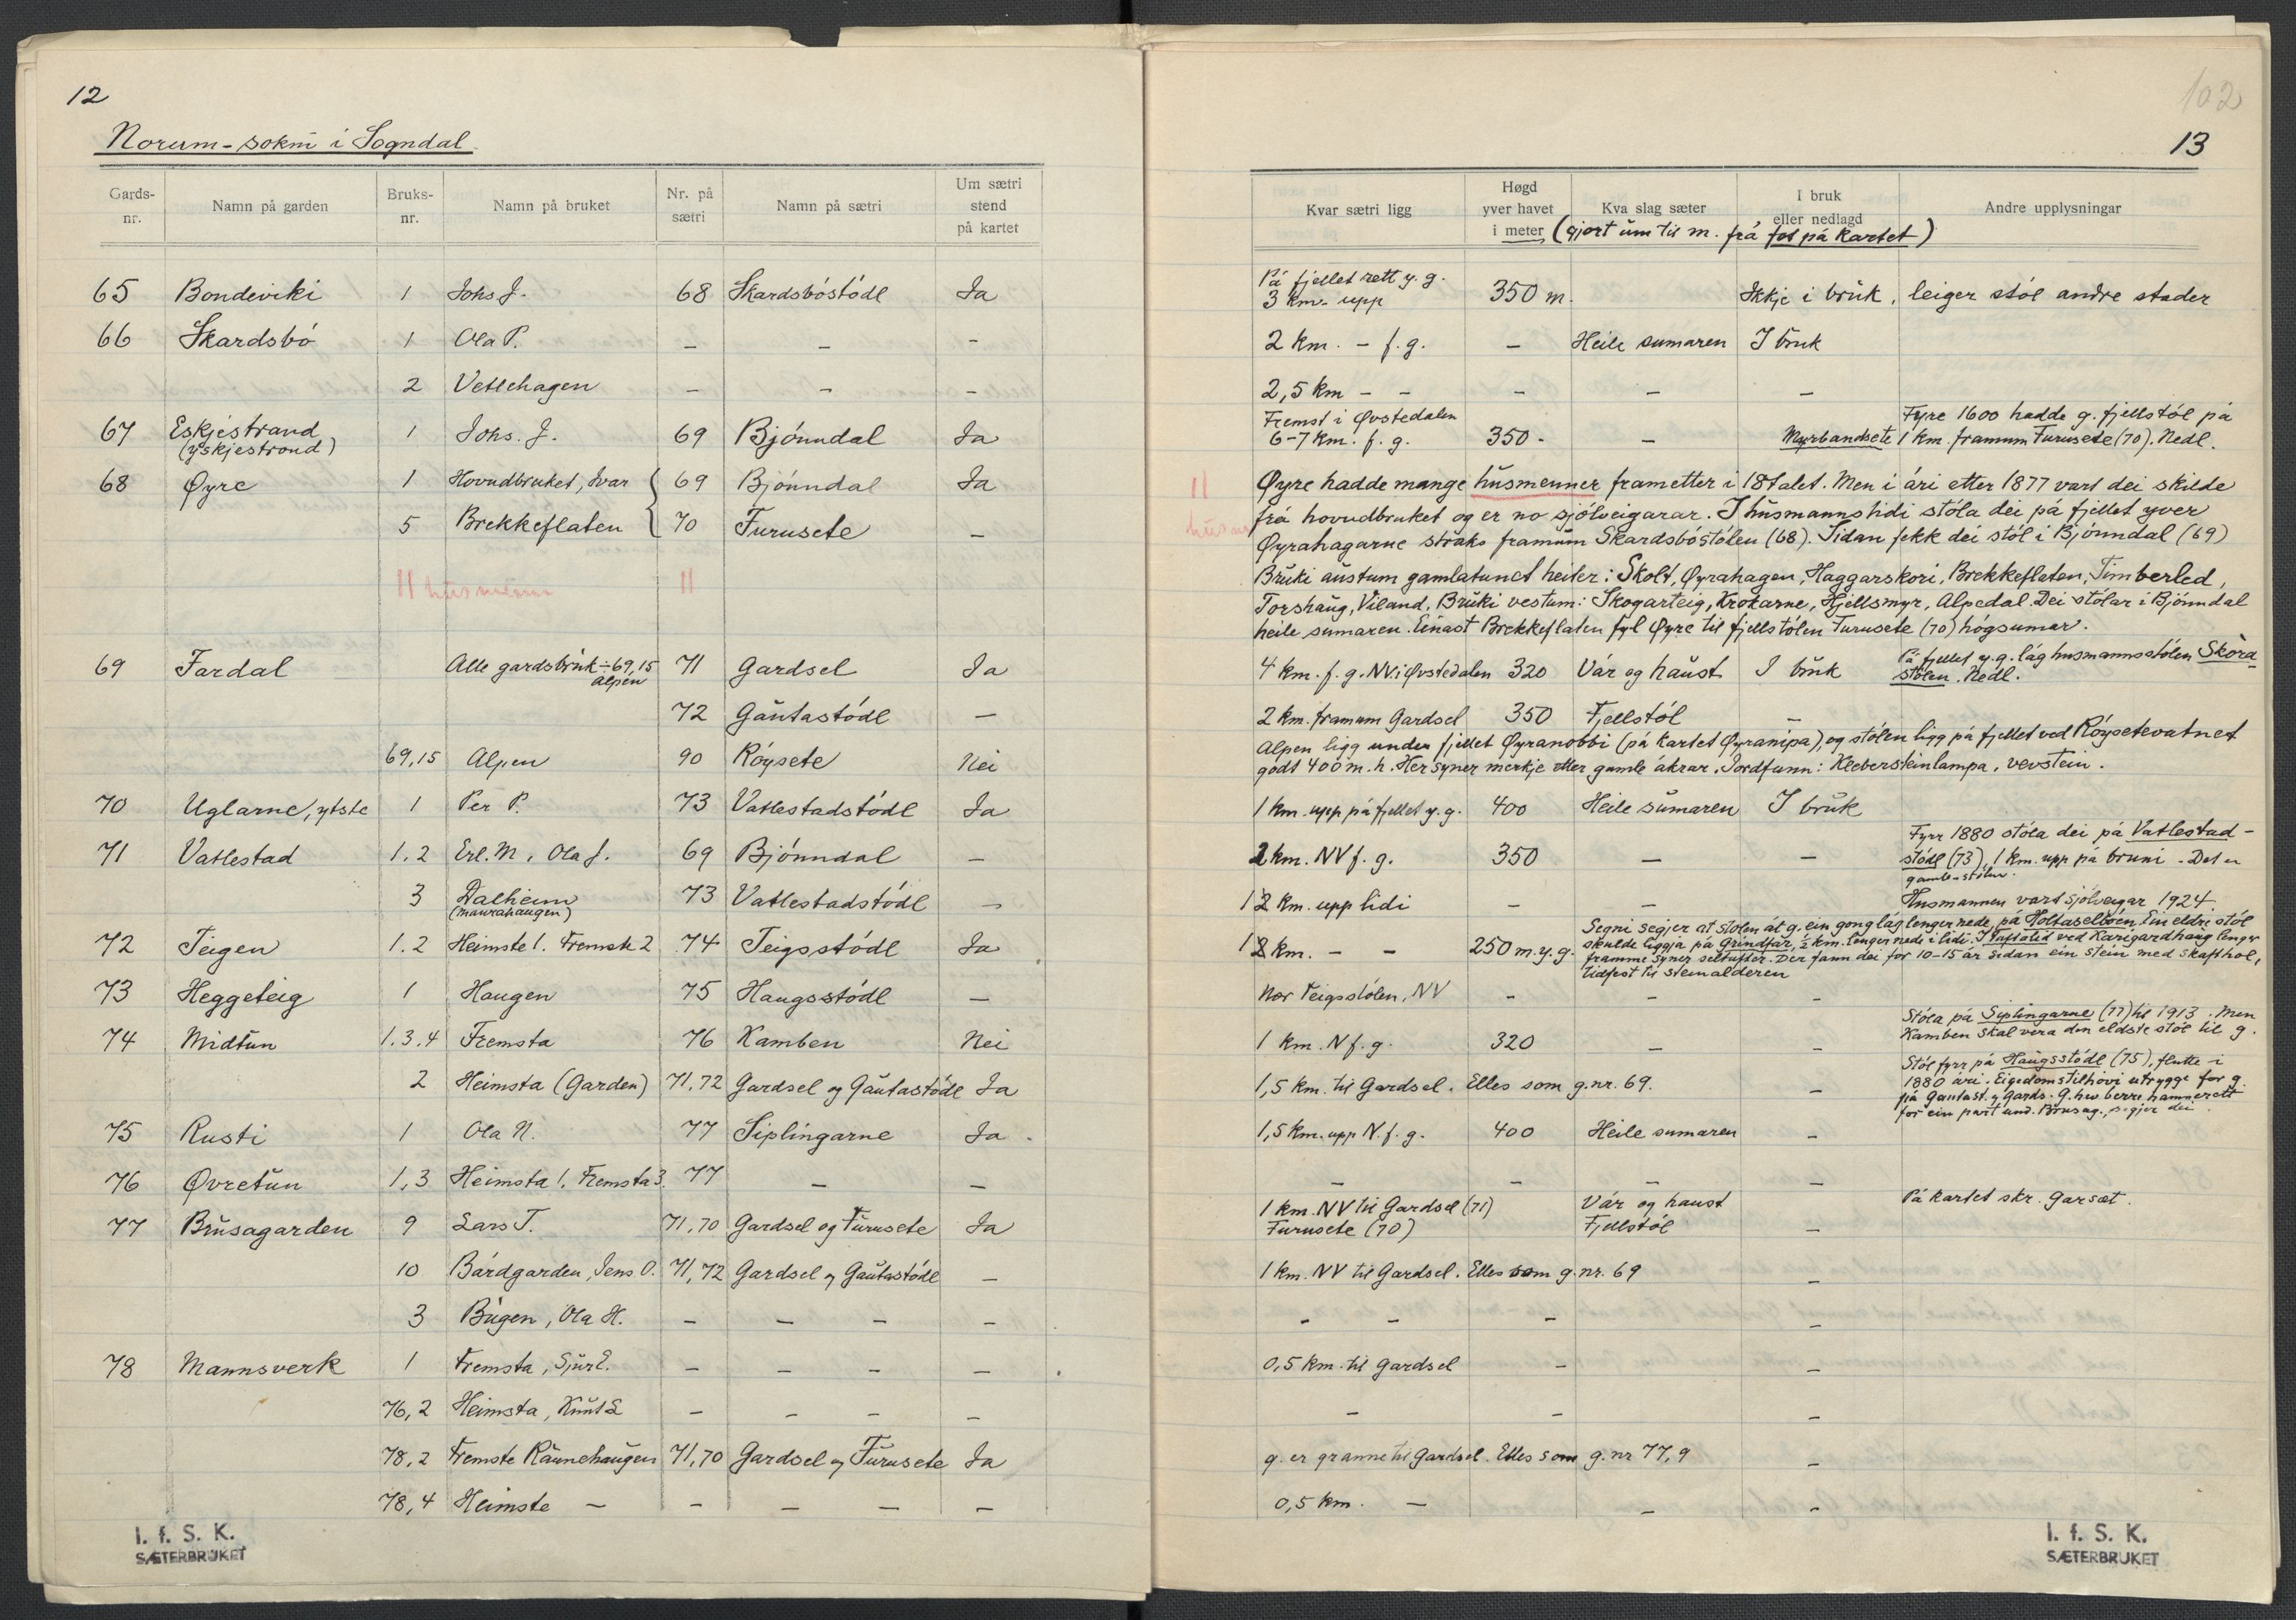 12
Norum-sokni i Sogndal.
Gards-nr. Namn på garden Bruks-nr. Namn på bruket Nr. på sætri Namn på sætri Um sætri stend på kartet
65 Bondeviki 1 Johs J. 68 Skardsbóstódl Ja
66 Skardsbó 1 Ola P. – – –
2 Vetlehagen – – –
67 Eskjestrand 1 Johs. J. 69 Bjónndal Ja
(yskjestrond)
68 Øyre 1 Hovudbruket, Ivar { 69 Bjónndal Ja
5 Brekkeflaten 70 Furusete –
11 husmenn 11
69 Fardal Alle gardsbruk ÷ 69,15 71 Gardsel Ja
Alpen
72 Gautastódl –
69,15 Alpen 90 Róysete Nei
70 Uglarne, ytste 1 Per P. 73 Vatlestadstódl Ja
71 Vatlestad 1,2 Erl. M, Ola J. 69 Bjónndal –
3 Dalheim 73 Vatlestadstódl –
(Maurahaugen)
72 Teigen 1.2 Heimste 1. Fremste 2 74 Teigsstódl Ja
73 Heggeteig 1 Haugen 75 Haugsstódl –
74 Midtun 1.3.4 Fremsta 76 Kamben Nei
2 Heimsta (Garden) 71,72 Gardsel og Gautastódl Ja
75 Rusti 1 Ola N. 77 Siplingarne Ja
76 Øvretun 1,3 Heimsta 1. Fremsta 3. 77 – –
77 Brusagarden 9 Lars T. 71,70 Gardsel og Furusete Ja
10 Bárdgarden, Jens O. 71,72 Gardsel og Gautastódl –
3 Bugen, Ola H. – – – –
78 Mannsverk 1 Fremsta, Sjur E. – – – –
76,2 Heimsta, Knut L – – – –
78,2 Fremste Raunehaugen 71,70 Gardsel og Furusete Ja
78,4 Heimste – – – – –
I. f. S. K.
SÆTERBRUKET
102
13
Kvar sætri ligg Høgd yver havet i meter Kva slag sæter I bruk eller nedlagd Andre upplysningar
(gjort um til m. frá fot på kartet)
Pá fjellet rett y. g.
3 km. upp 350 m. Ikkje i bruk, leiger stól andre stader
2 km. – f. g. – Heile sumaren I bruk
2,5 km – – – – –
Fremst i Øvstedalen Fyre 1600 hadde g. fjellstól på
6-7 km. f. g. 350 - – Myrbandsete 1 km. framum Furusete (70). Nedl.
11 Øyre hadde mange husmenner frametter i 18talet. Men i ári etter 1877 vart dei skilde
husm frá hovudbruket og er no sjólveigarar. I husmannstidi stóla dei på fjellet yver
Øyrahagarne straks framum Skardsbóstólen (68). Sidan fekk dei stól i Bjónndal (69)
Bruki austum gamlatunet heiter: Skolt, Øyrahagen, Haggarskori, Brekkeflaten, Timberled,
Torshaug, Viland. Bruki vestum: Skogarteig, Krokarne, Hjellsmyr, Alpedal. Dei stólar i Bjónndal
heile sumaren. Einast Brekkeflaten fyl Øyre til fjellstólen Furusete (70) hógsumar.
4 km. f. g. NV i Øvstedalen 320 Vár og haust I bruk Pá fjellet y. g. låg husmannsstólen Skora-
stólen. Nedl.
2 km. framum Gardsel 350 Fjellstól –
Alpen ligg under fjellet Øyranobbi (på kartet Øyranipa), og stólen ligg på fjellet ved Róysetevatnet
godt 400 m. h. Her syner merkje etter gamle ákrar. Jordfunn: Klebersteinlampa, vevstein.
1 km. upp på fjellet y. g. 400 Heile sumaren I bruk
2 km. NV f. g. 350 – – Fyrr 1880 stóla dei på Vatlestad-
stódl (73), 1 km. upp på bruni. Det er
gamle-stólen.
1 2 km. upp lidi – – Husmannen vart sjólveigar 1924.
Segni segjer at stólen át g. ein gong låg lenger nede, på Holtaselbóen. Ein eldre stól
1 2 km. – – 250 m. y. g. skulde liggja på Grindfar, ½ km. lenger nede i lidi. I Tuftalid ved Karigardhaug lenger
framme syner seltufter. Der fann dei for 10-15 år sidan ein stein med skafthol,
tidfest til steinalderen
Nær Teigsstólen, NV – – –
1 km. N f. g. 320 – – Stóla på Siplingarne (77) til 1913. Men
Kamben skal vera den eldste stól til g.
1,5 km. til Gardsel. Elles som g.nr. 69. – Stól fyrr på Haugsstódl (75), flutte i
1880 ári. Eigedomstilhóvi utrygge for g.
på Gautast. og Gards. G. hev berre hamnerett
for ein part und. Brusag., segjer dei.
1,5 km. upp N. f. g. 400 Heile sumaren –
– – – –
1 km. NV til Gardsel (71) Vár og haust På kartet skr. Garsæt.
Furusete (70) Fjellstól –
1 km. NV til Gardsel. Elles som g.nr. 69 –
– – – –
0,5 km. til Gardsel – –
– – –
g. er granne til Gardsel. Elles som g.nr 77,9 –
0,5 km. – – –
I. f. S. K.
SÆTERBRUKET